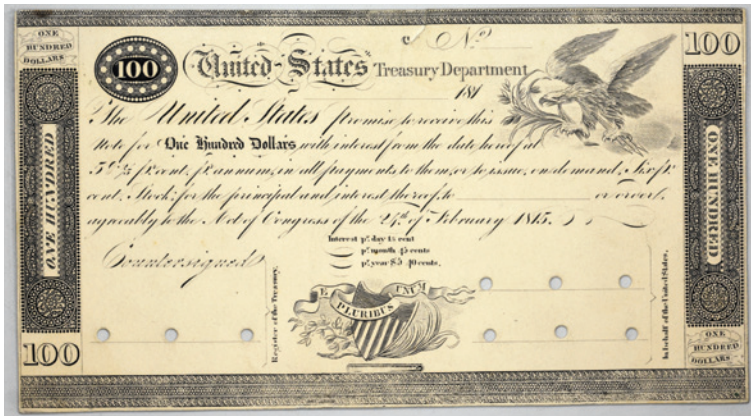 ONE
HUNDRED
DOLLARS
100
United States Treasury Department
Nº
100
181
The United States promise to receive this
Note for One Hundred Dollars with interest from the date hereof at
5 2/5 pr. cent. pr. annum, in all payments to them, or to issue, on demand, Six pr.
cent. Stock, for the principal and interest thereof, to or order,
agreeably to the Act of Congress of the 24th of February 1815.
Interest pr. day 1½ cent
pr. month 45 cents
pr. year $5 40 cents.
Countersigned
ONE HUNDRED
ONE HUNDRED
Register of the Treasury.
E PLURIBUS UNUM
In behalf of the United States.
100
ONE
HUNDRED
DOLLARS